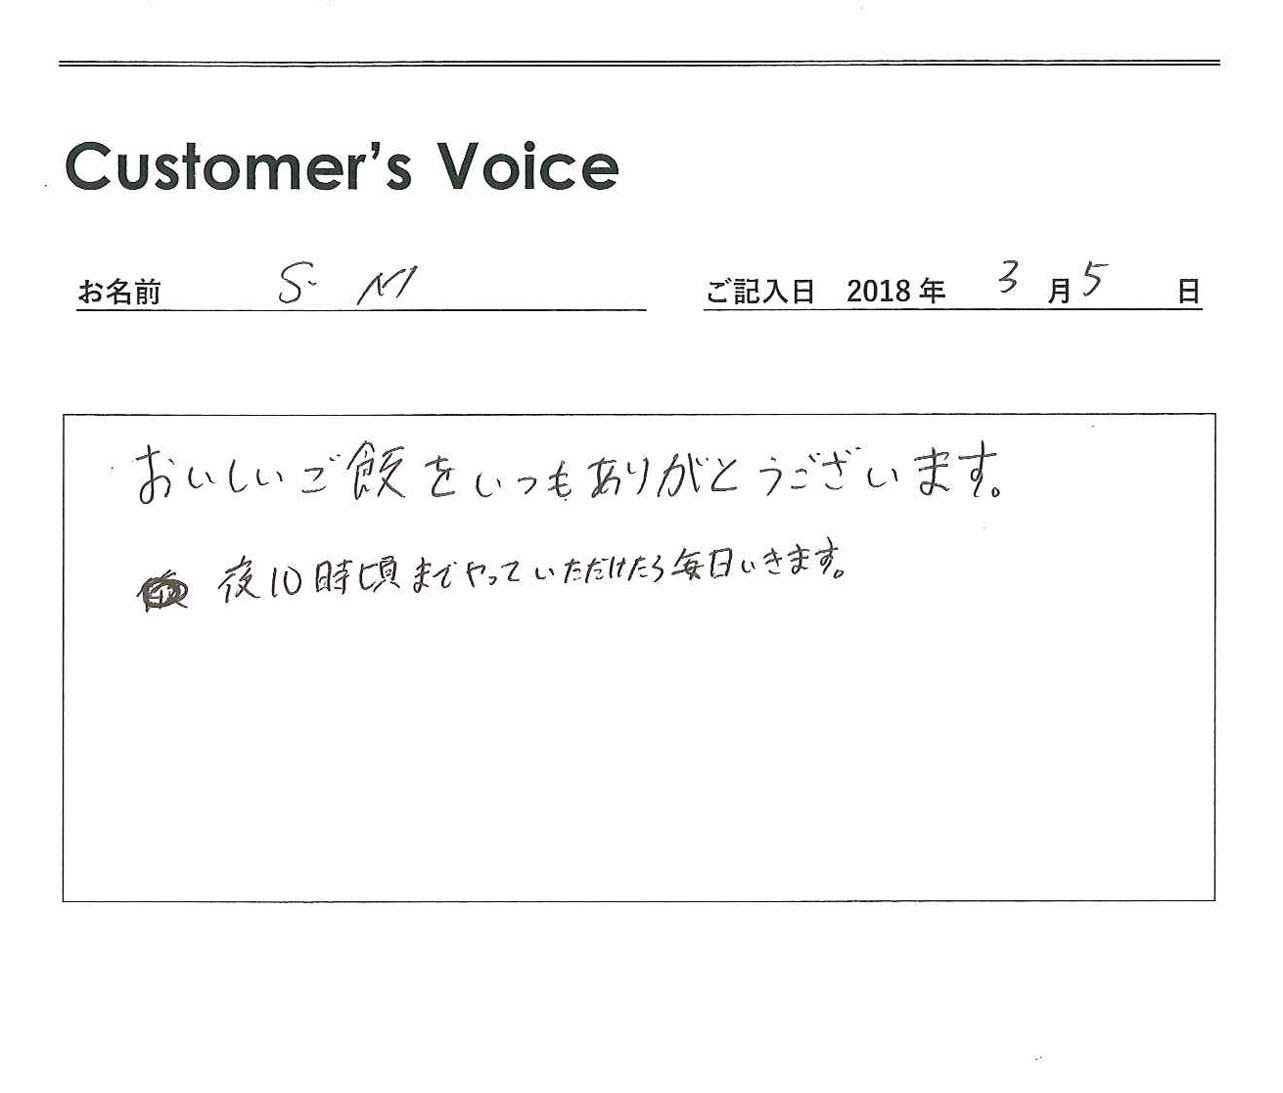 Customer's Voice
お名前 S. M ご記入日 2018年 3月5日
おいしいご飯をいつもありがとうございます。
夜10時頃までやっていただけたら毎日いきます。